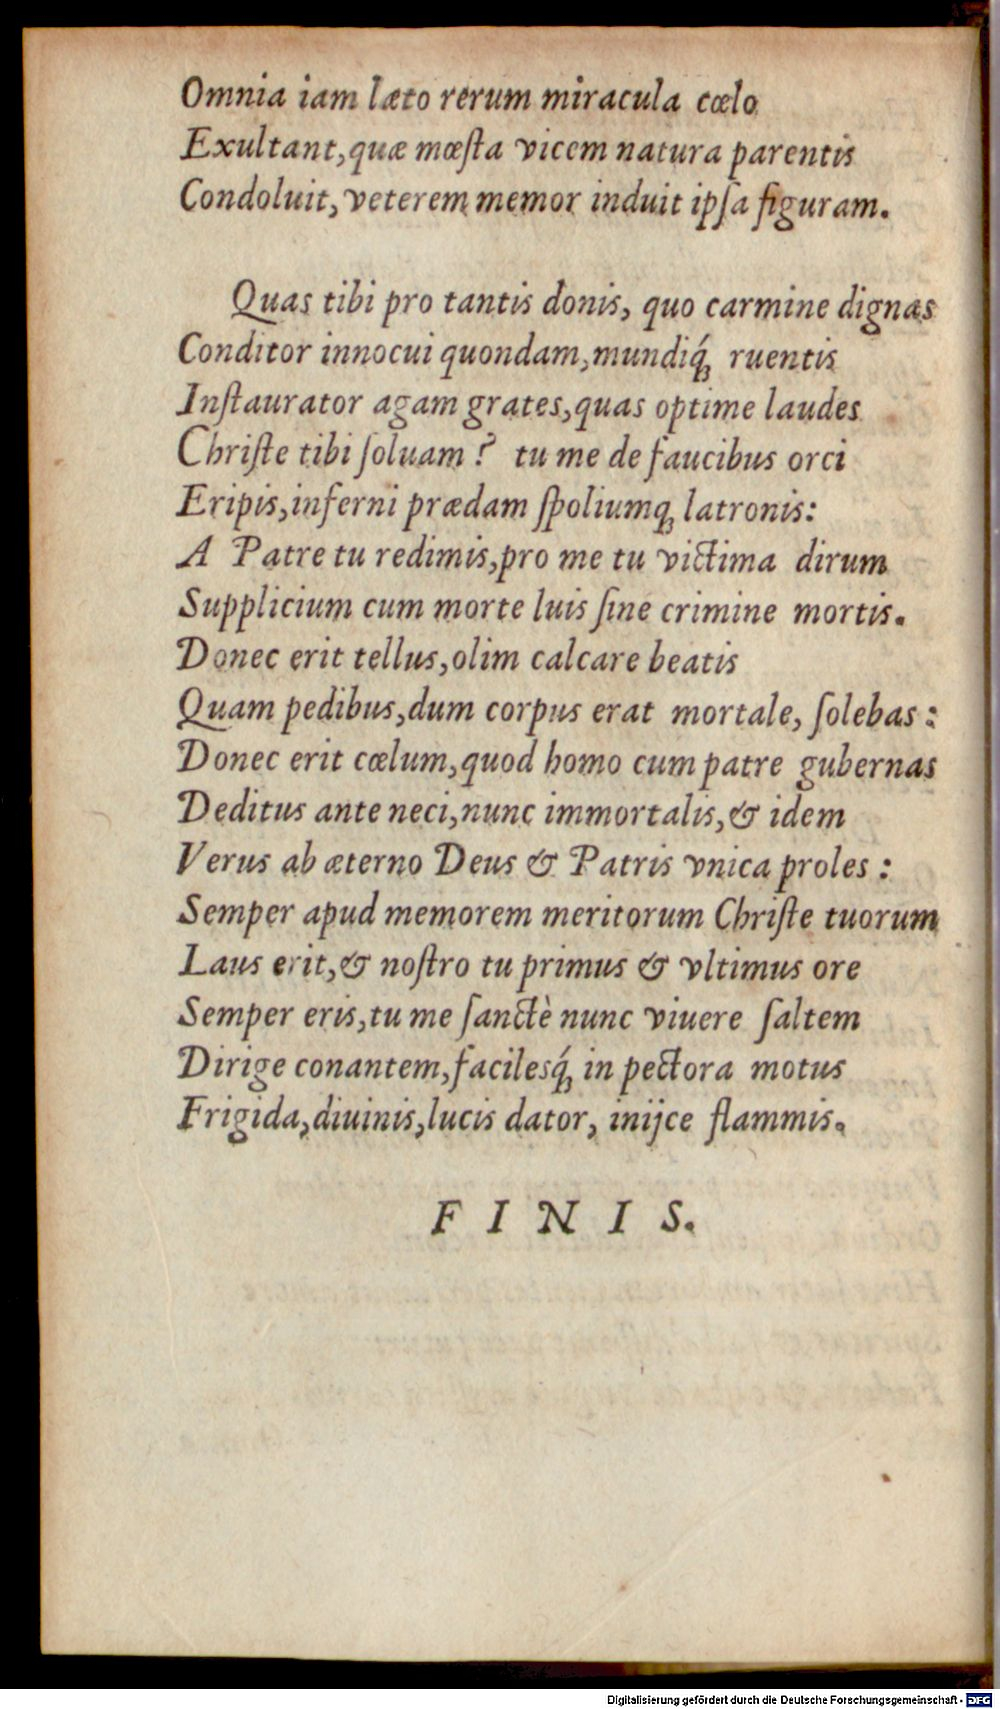 Omnia iam læto rerum miracula cœlo
Exultant, quæ mœſta vicem natura parentis
Condoluit, veterem memor induit ipſa figuram.
Quas tibi pro tantis donis, quo carmine dignas
Conditor innocui quondam, mundiq́; ruentis
Inſtaurator agam grates, quas optime laudes
Chriſte tibi ſoluam? tu me de faucibus orci
Eripis, inferni prædam ſpoliumq; latronis:
A Patre tu redimis, pro me tu victima dirum
Supplicium cum morte luis ſine crimine mortis.
Donec erit tellus, olim calcare beatis
Quam pedibus, dum corpus erat mortale, ſolebas:
Donec erit cœlum, quod homo cum patre gubernas
Deditus ante neci, nunc immortalis, & idem
Verus ab æterno Deus & Patris vnica proles:
Semper apud memorem meritorum Chriſte tuorum
Laus erit, & noſtro tu primus & vltimus ore
Semper eris, tu me ſanctè nunc viuere ſaltem
Dirige conantem, facilesq́; in pectora motus
Frigida, diuinis, lucis dator, inijce flammis.
FINIS.
Digitalisierung gefördert durch die Deutsche Forschungsgemeinschaft - DFG